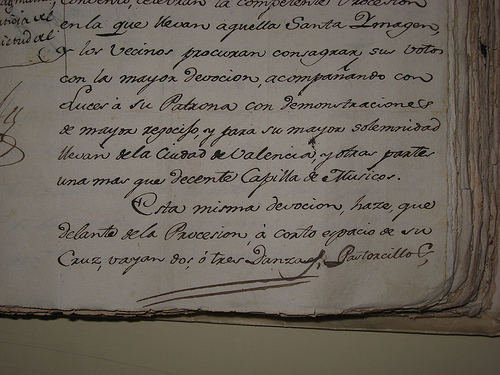 Convento, celebran la competente Procesion
en la que llevan aquella Santa Imagen,
y los vecinos procuran consagrar sus votos
con la mayor devocion, acompañando con
Luces à su Patrona con demonstraciones
de mayor regocijo, y para su mayor solemnidad
llevan de la Ciudad de Valencia, y otras partes
una mas que decente Capilla de Musicos.
Esta misma devocion, haze, que
delante de la Procesion, à corto espacio de su
Cruz, vayan dos, ó tres Danzas, Pastorcillos,